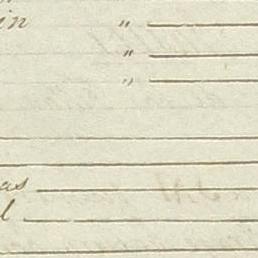 in "
"
"
as
l